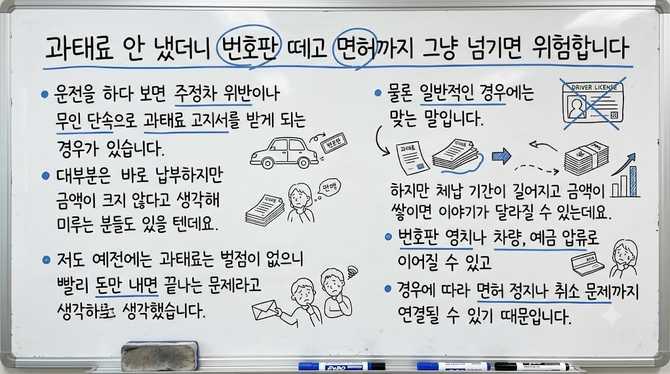 과태료 안 냈더니 번호판 떼고 면허까지 그냥 넘기면 위험합니다
운전을 하다 보면 주정차 위반이나
무인 단속으로 과태료 고지서를 받게 되는
경우가 있습니다.
번호판
대부분은 바로 납부하지만
금액이 크지 않다고 생각해
미루는 분들도 있을 텐데요.
저도 예전에는 과태료는 벌점이 없으니
빨리 돈만 내면 끝나는 문제라고
생각했습니다.
물론 일반적인 경우에는
맞는 말입니다.
DRIVER LICENSE
과태료
하지만 체납 기간이 길어지고 금액이
쌓이면 이야기가 달라질 수 있는데요.
번호판 영치나 차량, 예금 압류로
이어질 수 있고
경우에 따라 면허 정지나 취소 문제까지
연결될 수 있기 때문입니다.
EXPO